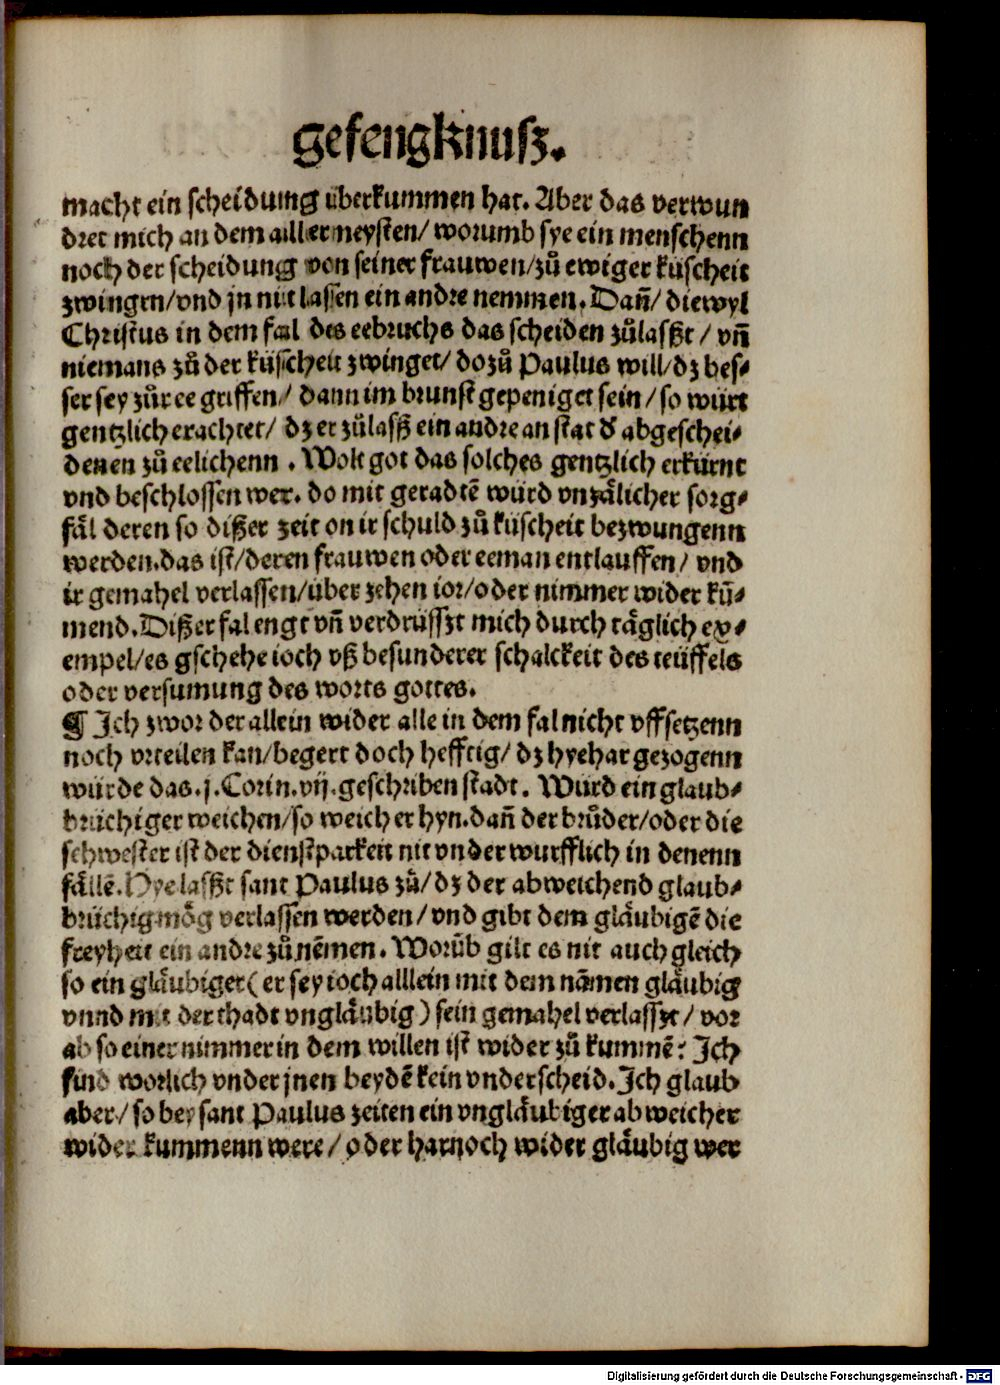 gefengknuſz.
macht ein ſcheidung überkummen hat. Aber das verwun
dret mich an dem aller neyſten/ worumb ſye ein menſchenn
noch der ſcheidung von ſeiner frauwen/zů ewiger küſcheit
zwingen/vnd jn nit laſſen ein andre nemmen. Dañ/ diewyl
Chriſtus in dem fal des eebruchs das ſcheiden zůlaſßt / vñ
niemans zů der küſcheit zwinget/ dozů Paulus will/ dz beſ⸗
ſer ſey zůr ee griffen/ dann im brunſt gepeniget ſein / ſo würt
gentzlich erachtet/ dz er zůlaſß ein andre an ſtat d᷑ abgeſchei⸗
denen zů eelichenn . Wolt got das ſolches gentzlich erkürnt
vnd beſchloſſen wer. do mit geradtē würd vnzälicher ſorg⸗
fäl deren ſo dißer zeit on ir ſchuld zů küſcheit bezwungenn
werden.das iſt/deren frauwen oder eeman entlauffen/ vnd
ir gemahel verlaſſen/über zehen ior/oder nimmer wider kū⸗
mend. Dißer fal engt vñ verdrüſſzt mich durch täglich ex⸗
empel/es gſchehe ioch vß beſunderer ſchalckeit des teüffels
oder verſumung des worts gottes.
¶ Ich zwor der allein wider alle in dem fal nicht vffſetzenn
noch vrteilen kan/begert doch hefftig/ dz hyehar gezogenn
würde das .j. Corin. vij. geſchriben ſtadt. Würd ein glaub⸗
brüchiger weichen/ſo weich er hyn. dañ der brůder/oder die
ſchweſter iſt der dienſtparkeit nit vnderwurfflich in denenn
fällē. Hye laſßt ſant Paulus zů/ dz der abweichend glaub⸗
brüchig mög verlaſſen werden/ vnd gibt dem gläubigē die
freyheit ein andre zů nēmen. Worūb gilt es nit auch gleich
ſo ein gläubiger( er ſey ioch alllein mit dem nāmen gläubig
vnnd mit der thadt vngläubig) ſein gemahel verlaſſzt/ vor
ab ſo einer nimmer in dem willen iſt wider zů kummē: Ich
find worlich vnder jnen beydē kein vnderſcheid. Ich glaub
aber/ ſo bey ſant Paulus zeiten ein vngläubiger abweicher
wider kummenn were/ oder harnoch wider gläubig wer
Digitalisierung gefördert durch die Deutsche Forschungsgemeinschaft - DFG